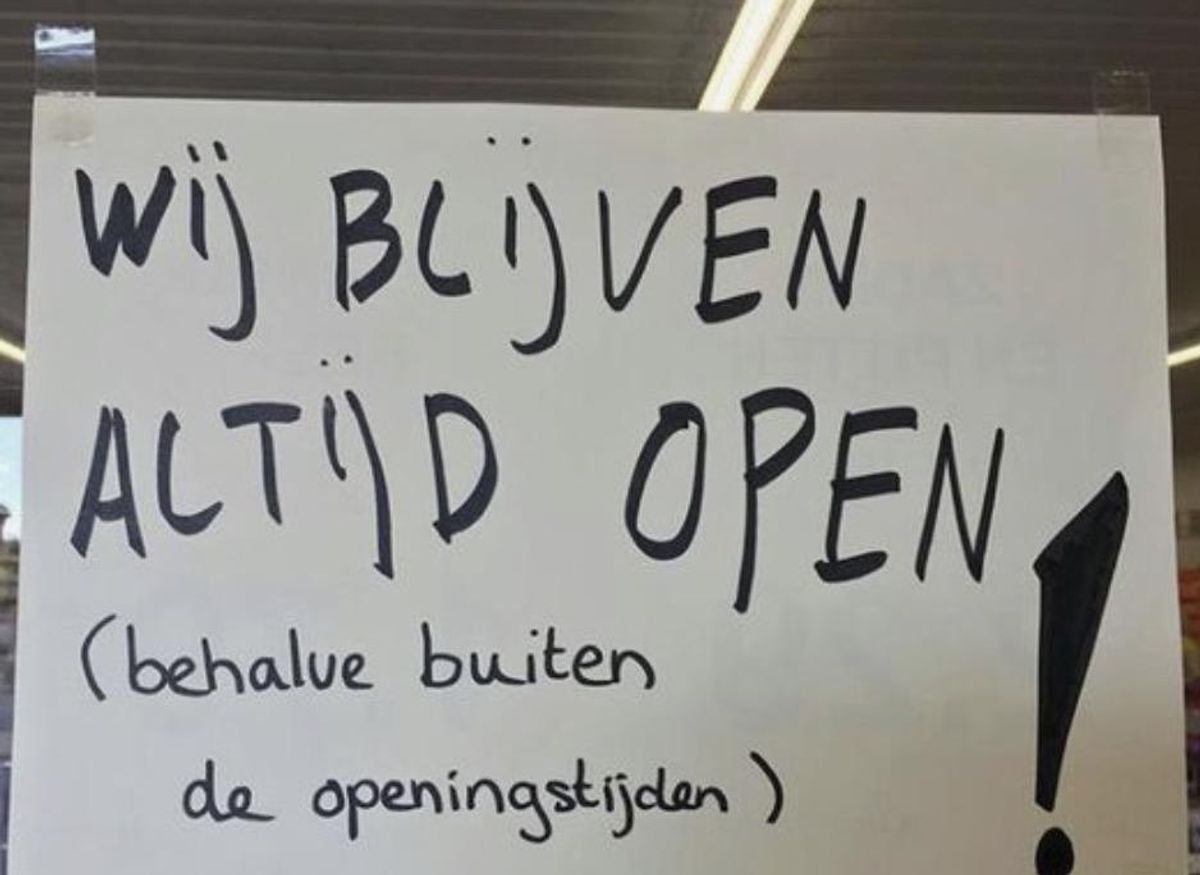 WIJ BLIJVEN
ALTIJD OPEN!
(behalve buiten
de openingstijden)